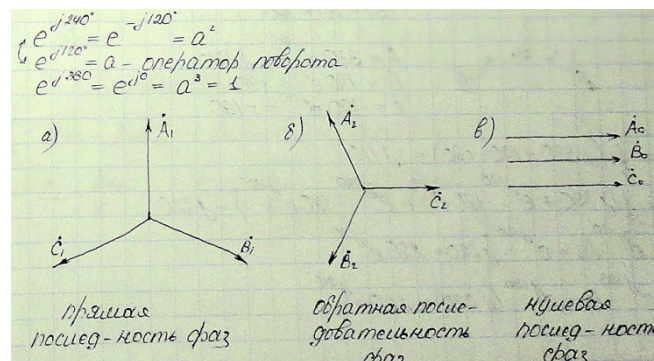 e^j240° = e^-j120° = a²
e^j120° = a - оператор поворота
e^j360° = e^j0 = a³ = 1
а)
Ȧ₁
Ḃ₁
Ċ₁
б)
Ȧ₂
Ċ₂
Ḃ₂
в)
Ȧ₀
Ḃ₀
Ċ₀
прямая
послед-ность фаз
обратная после-
довательность
фаз
нулевая
послед-ность
фаз